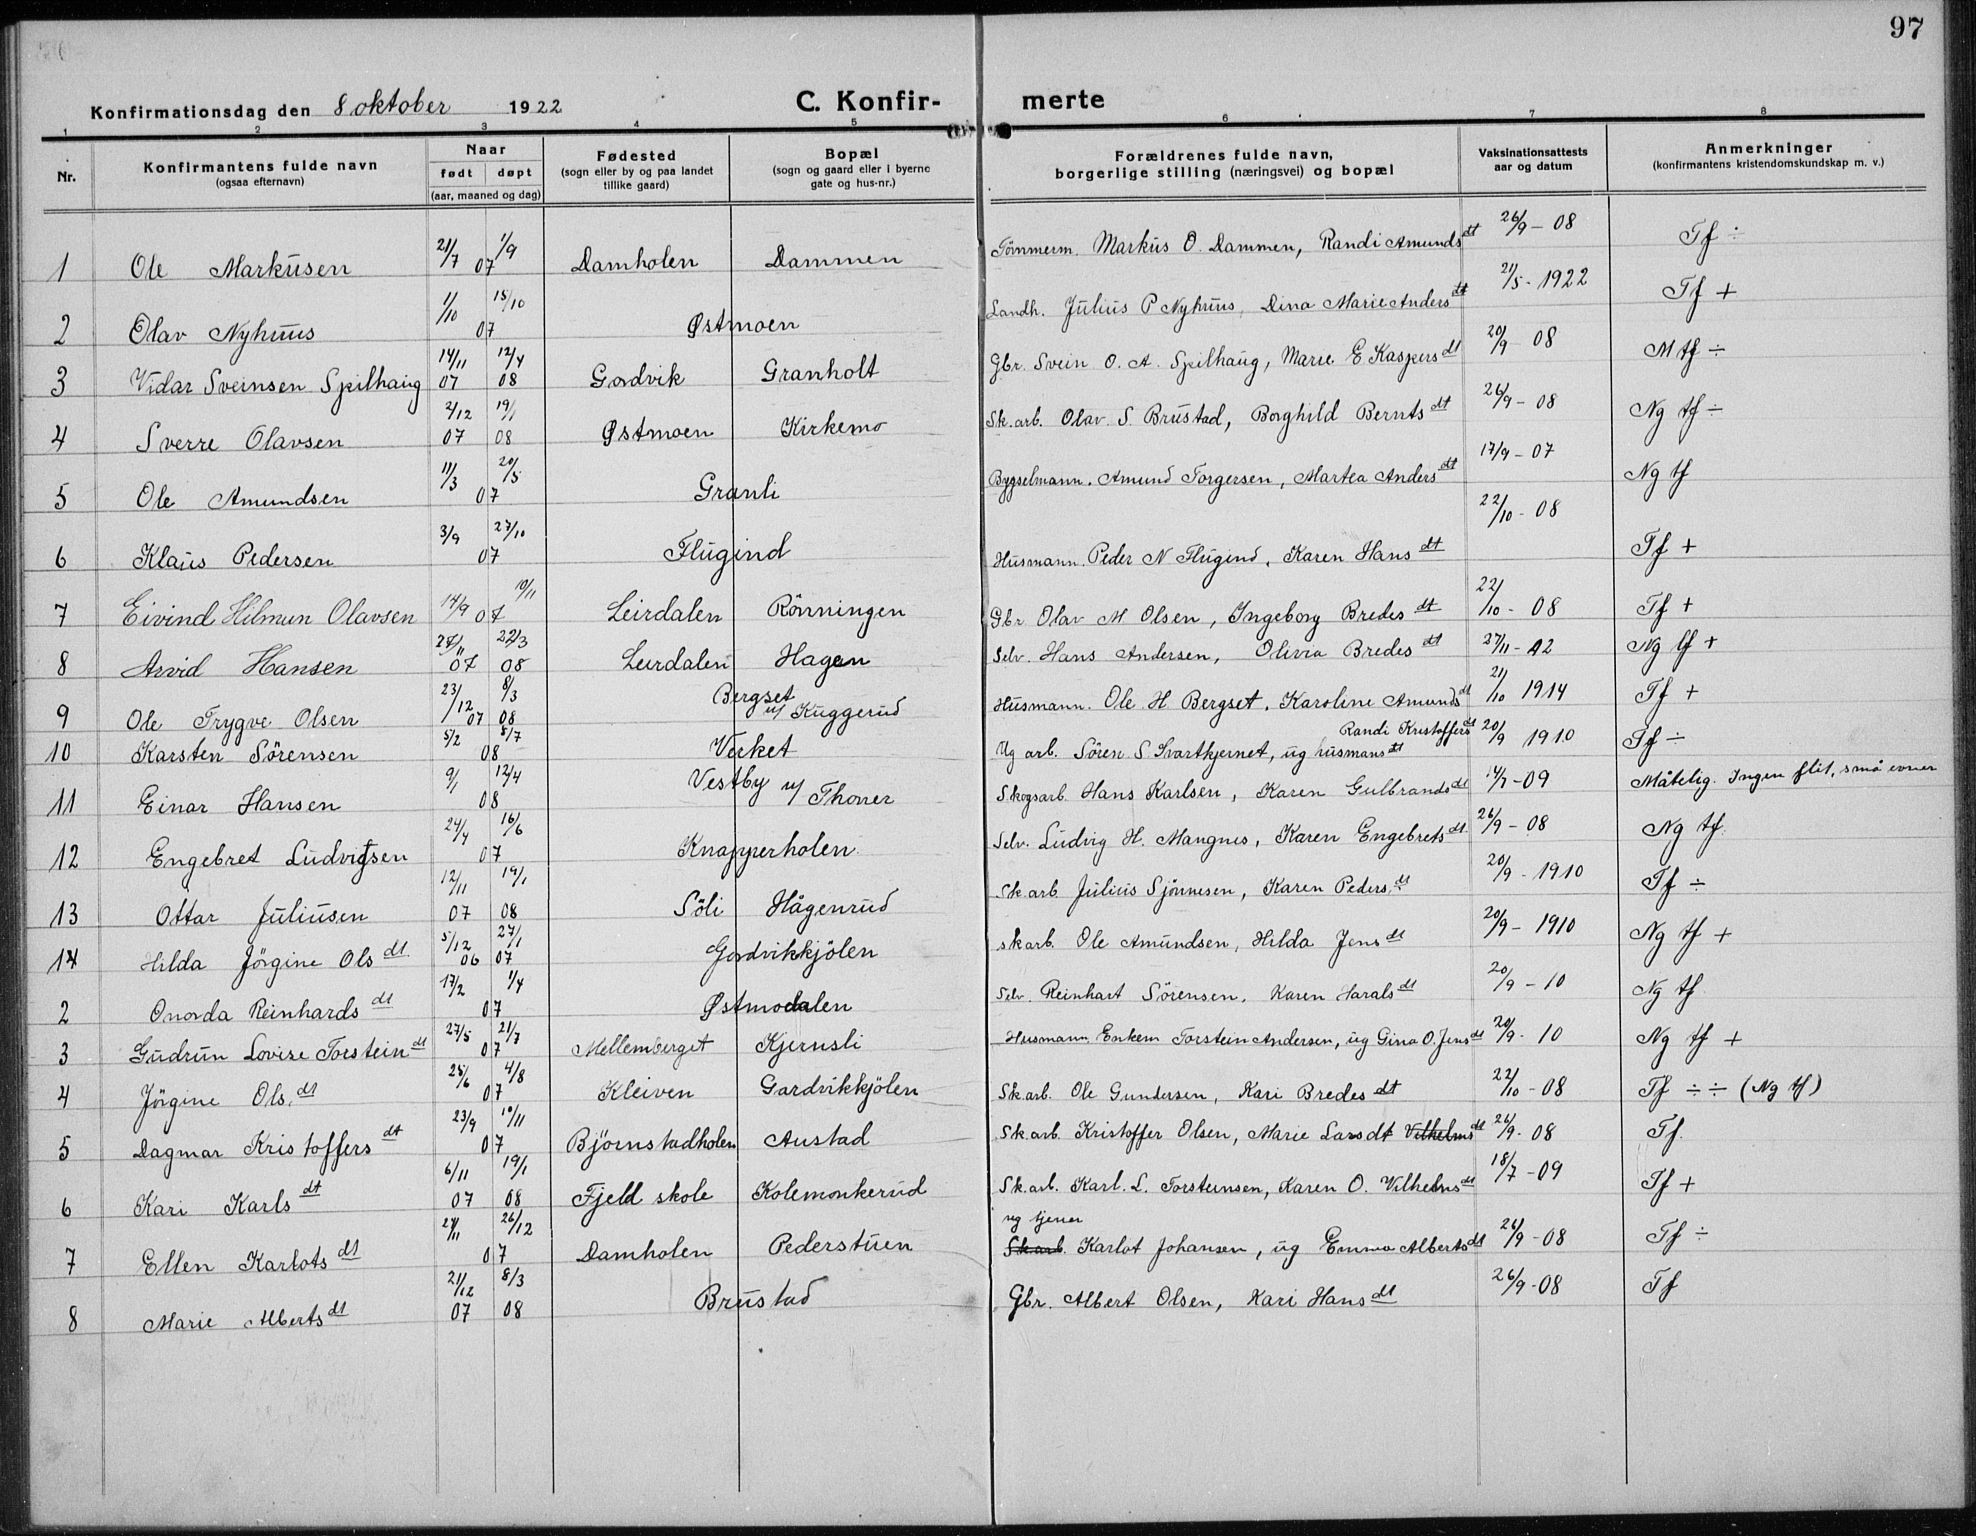 97
Konfirmationsdag den 8 oktober 1922 C. Konfir- merte
1 2 3 4 5 6 7 8
Nr. Konfirmantens fulde navn (ogsaa efternavn) Naar født døpt (aar, maaned og dag) Fødested (sogn eller by og paa landet tillike gaard) Bopæl (sogn og gaard eller i byerne gate og hus-nr.) Forældrenes fulde navn, borgerlige stilling (næringsvei) og bopæl Vaksinationsattests aar og datum Anmerkninger (konfirmantens kristendomskundskap m. v.)
1 Ole Markusen 21/7 1/9 07 Damholen Dammen Tömmerm. Markus O. Dammen, Randi Amundsdt 26/9 - 08 Tf ÷
2 Olav Nyhuus 1/10 15/10 07 Østmoen Landh. Julius P Nyhuus, Dina Marie Andersdt 21/5 - 1922 Tf +
3 Vidar Sveinsen Spilhaug 14/11 07 12/4 08 Gardvik Granholt Gbr. Svein O. A. Spilhaug, Marie E Kaspersdt 20/9 - 08 M tf ÷
4 Sverre Olavsen 2/12 07 19/1 08 Østmoen Kirkemo Sk.arb. Olav S. Brustad, Borghild Berntsdt 26/9 - 08 Ng tf ÷
5 Ole Amundsen 11/3 20/5 07 Granli Bygselmann. Amund Torgersen, Martea Andersdt 17/9 - 07 Ng tf
6 Klaus Pedersen 3/9 27/10 07 Flugind Husmann. Peder N Flugind, Karen Hansdt 22/10 - 08 Tf +
7 Eivind Hilmun Olavsen 14/9 10/11 07 Leirdalen Rönningen Gbr. Olav M Olsen, Ingeborg Bredesdt 22/10 - 08 Tf +
8 Arvid Hansen 07 22/3 08 Leirdalen Hagen Selv. Hans Andersen, Olivia Bredesdt 27/11 - 12 Ng tf +
9 Ole Trygve Olsen 23/12 07 8/3 08 Bergset u/ Kuggerud Husmann. Ole H Bergset, Karoline Amundsdt 21/10 1914 Tf +
10 Karsten Sörensen 5/2 5/7 08 Verket Ug arb. Sören S. Svartkjernet, ug husmansdt Randi Kristoffersdt 20/9 1910 Tf ÷
11 Einar Hansen 9/1 12/4 08 Vestby u/ Thorer Skogsarb. Hans Karlsen, Karen Gulbrandsdt 14/7 - 09 Måtelig. Ingen flit, små evner
12 Engebret Ludvigsen 24/4 16/6 07 Knapperholen Selv. Ludvig H. Mangnes, Karen Engebretsdt 26/9 - 08 Ng tf.
13 Ottar Juliusen 12/11 07 19/1 08 Söli Hågenrud Sk.arb. Julius Sjönnesen, Karen Pedersdt 20/9 - 1910 Tf ÷
14 Hilda Jörgine Olsdt. 5/12 06 27/1 07 Gardvikkjölen skarb. Ole Amundsen, Hilda Jensdt 20/9 - 1910 Ng tf +
2 Onorda Reinhardsdt 17/2 1/4 07 Østmodalen Selv. Reinhart Sörensen, Karen Haralsdt 20/9 - 10 Ng tf.
3 Gudrun Lovise Torsteindt 27/5 21/7 07 Mellemberget Kjernsli Husmann Enkem Torstein Andersen, ug Gina O. Jensdt 20/9 - 10 Ng tf +
4 Jörgine Olsdt 25/6 4/8 07 Kleiven Gardvikkjölen Sk.arb. Ole Gundersen, Kari Bredesdt 22/10 - 08 Tf ÷ ÷ (Ng tf)
5 Dagmar Kristoffersdt 23/9 10/11 07 Björnstadholen Austad Sk.arb. Kristoffer Olsen, Marie Larsdt Vilhelmsdt 26/9 - 08 Tf.
6 Kari Karlsdt 6/11 07 19/1 08 Fjeld skole Kolemonkerud Sk.arb. Karl. L. Torsteinsen, Karen O. Vilhelmsdt 18/7 - 09 Tf +
ug tjener
7 Ellen Karlotsdt 26/12 07 Damholen Pederstuen Sk.arb. Karlot Johansen, ug Emma Albertsdt 26/9 - 08 Tf ÷
8 Marie Albertsdt 21/12 07 8/3 08 Brustad Gbr. Albert Olsen, Kari Hansdt 26/9 - 08 Tf